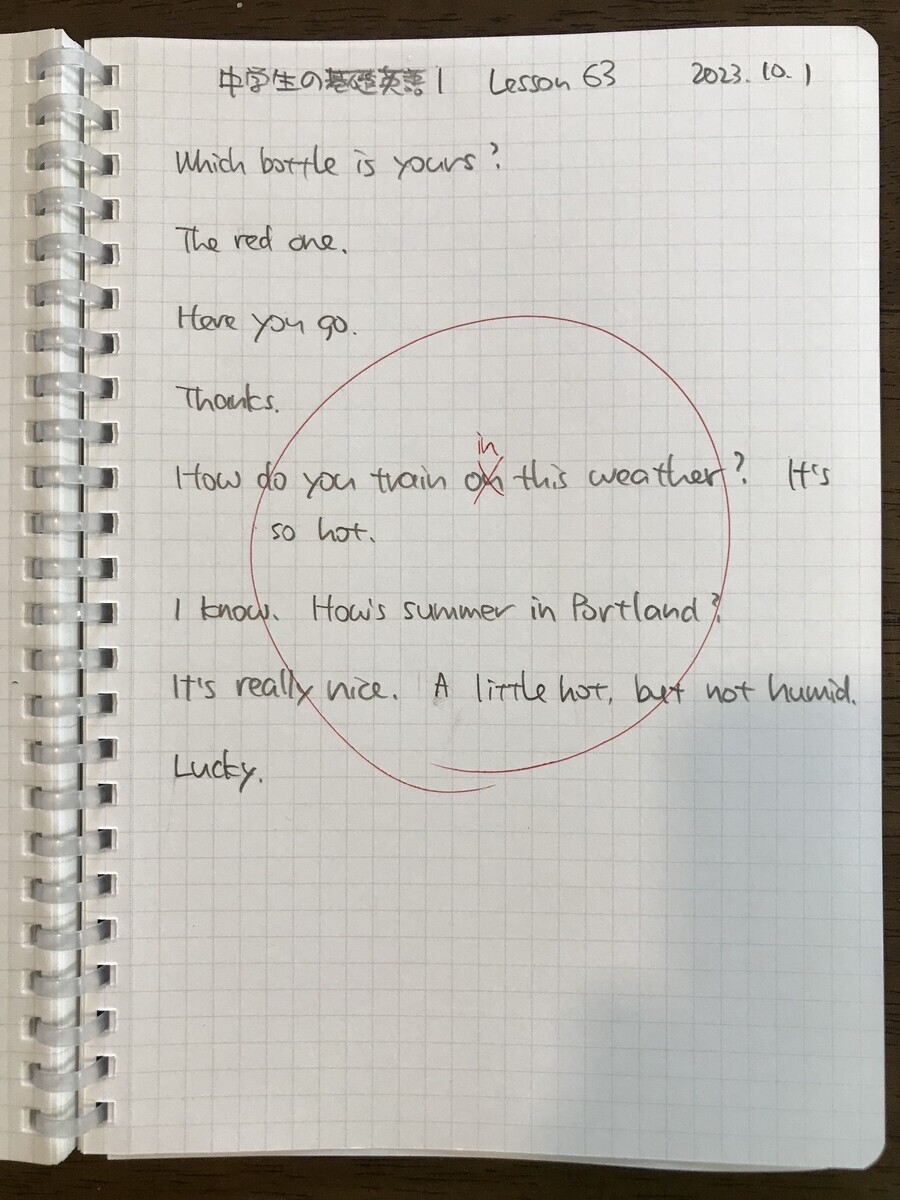 中学生の基礎英語1 Lesson 63 2023.10.1
Which bottle is yours?
The red one.
Here you go.
Thanks.
in
How do you train on this weather? It's
so hot.
I know. How's summer in Portland?
It's really nice. A little hot, but not humid.
Lucky.